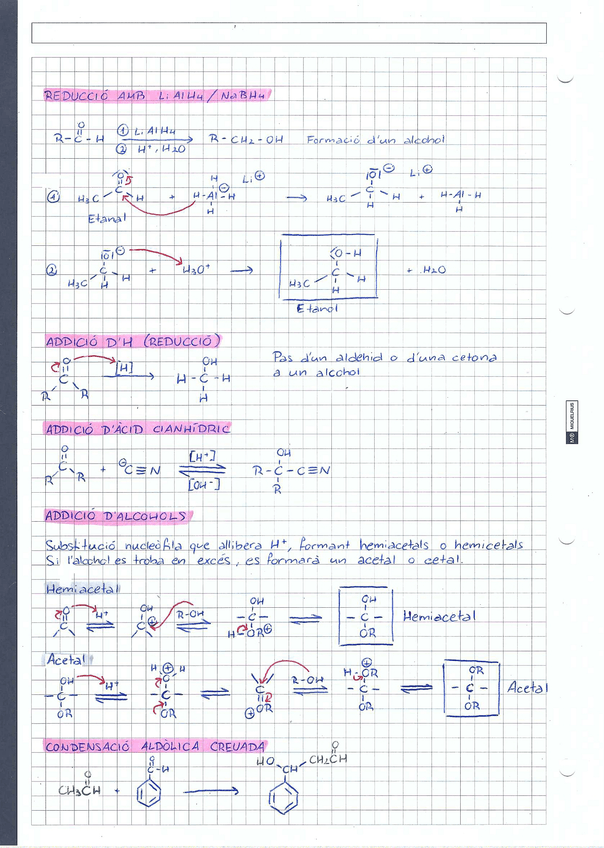 REDUCCIÓ AMB LiAlH4/NaBH4
R-C-H O ① LiAlH4 ② H+, H2O R-CH2-OH Formació d'un alcohol
① H3C C O H + H-Al-H H H ⊖ Li⊕ → H3C C |O|⊖ H H Li⊕ + H-Al-H H
Etanal
② |O|⊖ H3C C H H + H3O+ → O-H H3C C H H + H2O
Etanol
ADDICIÓ D'H (REDUCCIÓ)
Pas d'un aldehid o d'una cetona
a un alcohol
O C R R [H] OH H-C-H H
ADDICIÓ D'ÀCID CIANHÍDRIC
O C R R + ⊖C≡N [H+] [OH-] OH R-C-C≡N R
ADDICIÓ D'ALCOHOLS
Substitució nucleòfila que allibera H+, formant hemiacetals o hemicetals
Si l'alcohol es troba en excés, es formarà un acetal o cetal.
Hemiacetal
O C H+ OH C⊕ R-OH OH -C- H-OR⊕ OH -C- OR Hemiacetal
Acetal
OH -C- OR H+ H ⊕ H O -C- OR C ⊕OR R-OH H-OR ⊕ -C- OR OR -C- OR Acetal
CONDENSACIÓ ALDÒLICA CREUADA
CH3CH O + O C-H HO CH CH2CH O
MIQUELRIUS